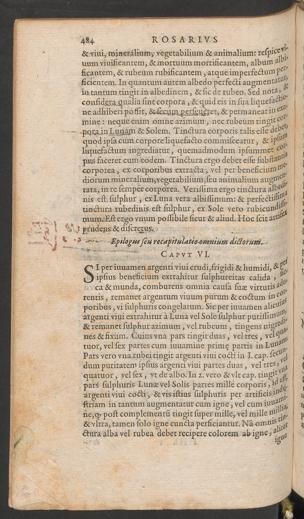 484 ROSARIVS
& viui, mineralium, vegetabilium & animalium: respice vi-
uum viuificantem, & mortuum mortificantem, album albi-
ficantem, & rubeum rubificantem, atque imperfectum per-
ficientem. In quantum autem albedo perfecti augmentatur,
in tantum tingit in albedinem, & sic de rubeo. Sed nota, &
considera qualia sint corpora, & quid eis in sua liquefactio-
ne adhiberi possit, & secum perfici & permaneat in exa-
mine: neque enim omne animal, nec rubeum tingit cor-
pora in Lunam & Solem. Tinctura corporis talis esse debet,
quod ipsa cum corpore liquefacto commisceatur, & ipsum
liquefactum ingrediatur, quemadmodum ipsummet cor-
pus faceret cum eodem. Tinctura ergo debet esse substantia
corporea, ex corporibus extracta, vel per beneficium me-
diorum mineralium, vegetabilium, seu animalium augmen-
rata, in re semper corporea. Verissima ergo tinctura albedi-
nis est sulphur, ex Luna vera albissimum: & perfectissima
tinctura rubedinis est sulphur, ex Sole vero rubicundissi-
mum. Est ergo vnum possibile sicut & aliud. Hoc scit artifex
prudens & discretus.
Epilogus seu recapitulatio omnium dictorum.
CAPVT VI.
SI per iuuamen argenti viui crudi, frigidi & humidi, & per
ipsius beneficium extrahitur sulphureitas calida, sic-
ca & munda, comburens omnia causa suæ virtutis adu-
rentis, remanet argentum viuum purum & coctum in cor-
poribus, vi sulphuris congelatum. Sic per iuuamen alicuius
argenti viui extrahitur à Luna vel Sole sulphur putissimum,
& remanet sulphur azimum, vel rubeum, tingens nigredi-
nes & fixum. Cuius vna pars tingit duas, vel tres, vel qua-
tuor, vel sex partes cum iuuamine primæ partis in Lunam.
Pars vero vna rubei tingit argenti viui cocti in I. cap. secun-
dum puritatem ipsius argenti viui partes duas, vel tres, vel
quatuor, vel sex, vt de albo. In 2. vero & vlt. cap. tingit vna
pars sulphuris Lunæ vel Solis partes mille corporis, id est,
argenti viui cocti, & vis istius sulphuris per artificis indu-
striam in tantum augmentatur cum igne, vel cum iuuami-
ne, & post complementū tingit super mille, vel mille millia,
& vltra, tamen solo igne cuncta perficiantur. Nā omnis tin-
ctura alba vel rubea debet recipere colorem ab igne, alicet
igna